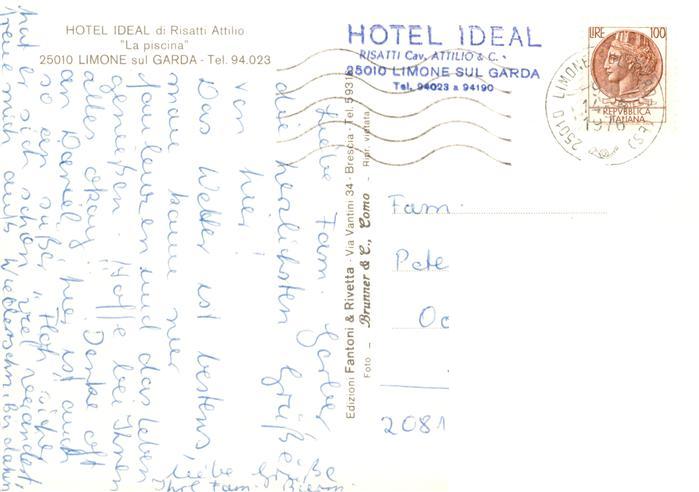 HOTEL IDEAL di Risatti Attilio
"La piscina"
25010 LIMONE sul GARDA - Tel. 94.023
HOTEL IDEAL
RISATTI Cav. ATTILIO & C.
25010 LIMONE SUL GARDA
Tel. 94023 a 94190
LIRE 100
REPVBBLICA
ITALIANA
25010 LIMONE
1976
(BS)
Edizioni Fantoni & Rivetta - Via Vantini 34 - Brescia - Tel. 5931
Foto - Brunner & C., Como - Ripr. vietata
Liebe Fam.
die herzlichsten Grüße
von hier.
Das Wetter ist bestens
man kann nur
faulenzen und das Leben
genießen. Hoffe bei Ihnen
alles okay. Denke oft
an Daniel, hier ist auch
so ein süßer
hat er sich schon
freue mich aufs
Liebe Grüße
Ihre Fam.
Fam.
Pete
Oc
2081